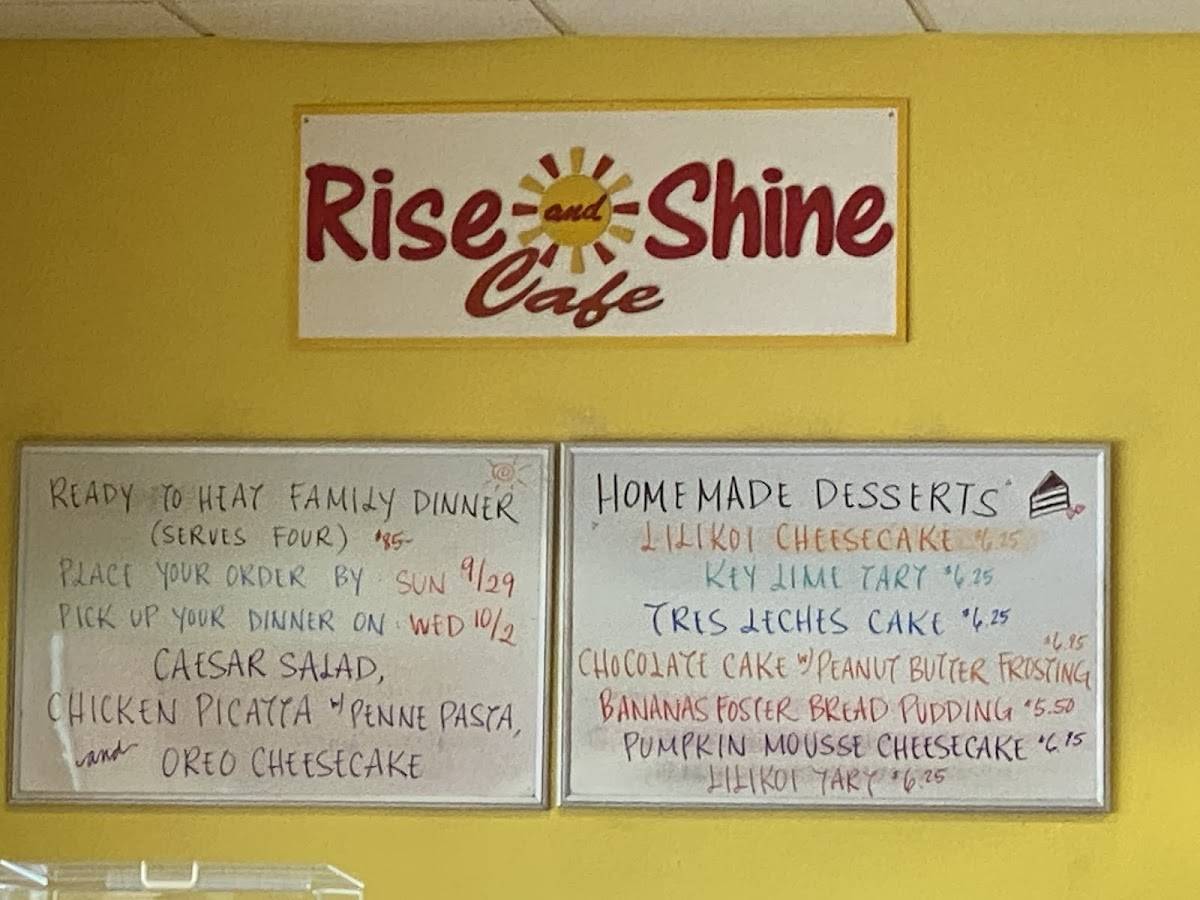 Rise and Shine
Cafe
READY TO HEAT FAMILY DINNER
(SERVES FOUR) $85-
PLACE YOUR ORDER BY: SUN 9/29
PICK UP YOUR DINNER ON: WED 10/2
CAESAR SALAD,
CHICKEN PICATTA w/ PENNE PASTA,
and OREO CHEESECAKE
HOMEMADE DESSERTS
LILIKOI CHEESECAKE $6.25
KEY LIME TART $6.25
TRES LECHES CAKE $6.25
$6.95
CHOCOLATE CAKE w/ PEANUT BUTTER FROSTING
BANANAS FOSTER BREAD PUDDING $5.50
PUMPKIN MOUSSE CHEESECAKE
LILIKOI TART $6.25